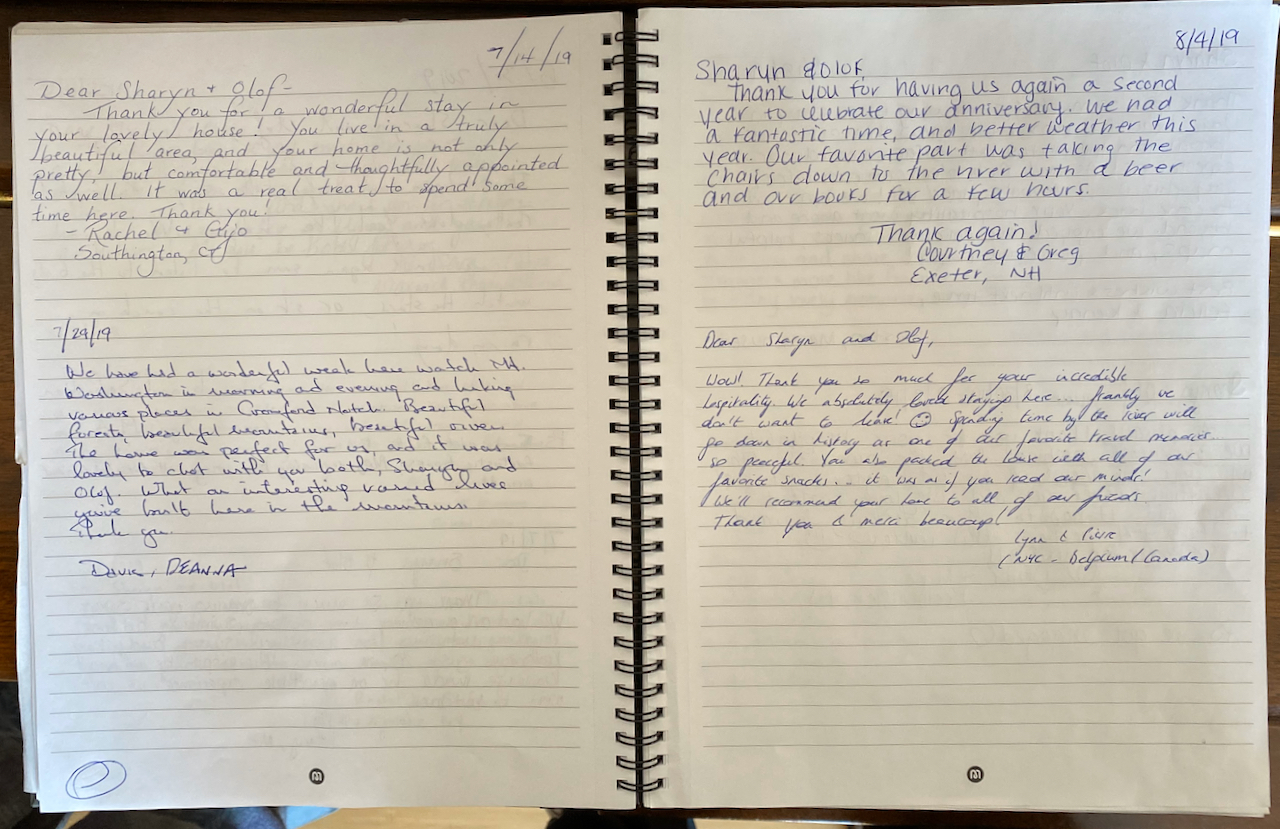 7/14/19
Dear Sharyn + Olof-
Thank you for a wonderful stay in
your lovely house! You live in a truly
beautiful area, and your home is not only
pretty, but comfortable and thoughtfully appointed
as well. It was a real treat to spend some
time here. Thank you!
- Rachel + Gijo
Southington, CT
7/29/19
We have had a wonderful week here watch Mt.
Washington in morning and evening and hiking
various places in Crawford Notch. Beautiful
forests, beautiful mountains, beautiful river.
The home was perfect for us, and it was
lovely to chat with you both, Sharyn and
Olof. What an interesting varied lives
you've built here in the mountains.
Thank you.
DEANNA
8/4/19
Sharyn & Olof,
Thank you for having us again a second
year to celebrate our anniversary. We had
a fantastic time, and better weather this
year. Our favorite part was taking the
chairs down to the river with a beer
and our books for a few hours.
Thank again!
Courtney & Greg
Exeter, NH
Dear Sharyn and Olof,
Wow! Thank you so much for your incredible
hospitality. We absolutely loved staying here... frankly we
don't want to leave! ☺ Spending time by the river will
go down in history as one of our favorite travel memories...
so peaceful. You also packed the house with all of our
favorite snacks... it was as if you read our minds!
We'll recommend your home to all of our friends.
Thank you & merci beaucoup!
Lynn & Pierre
(NYC - Belgium/Canada)